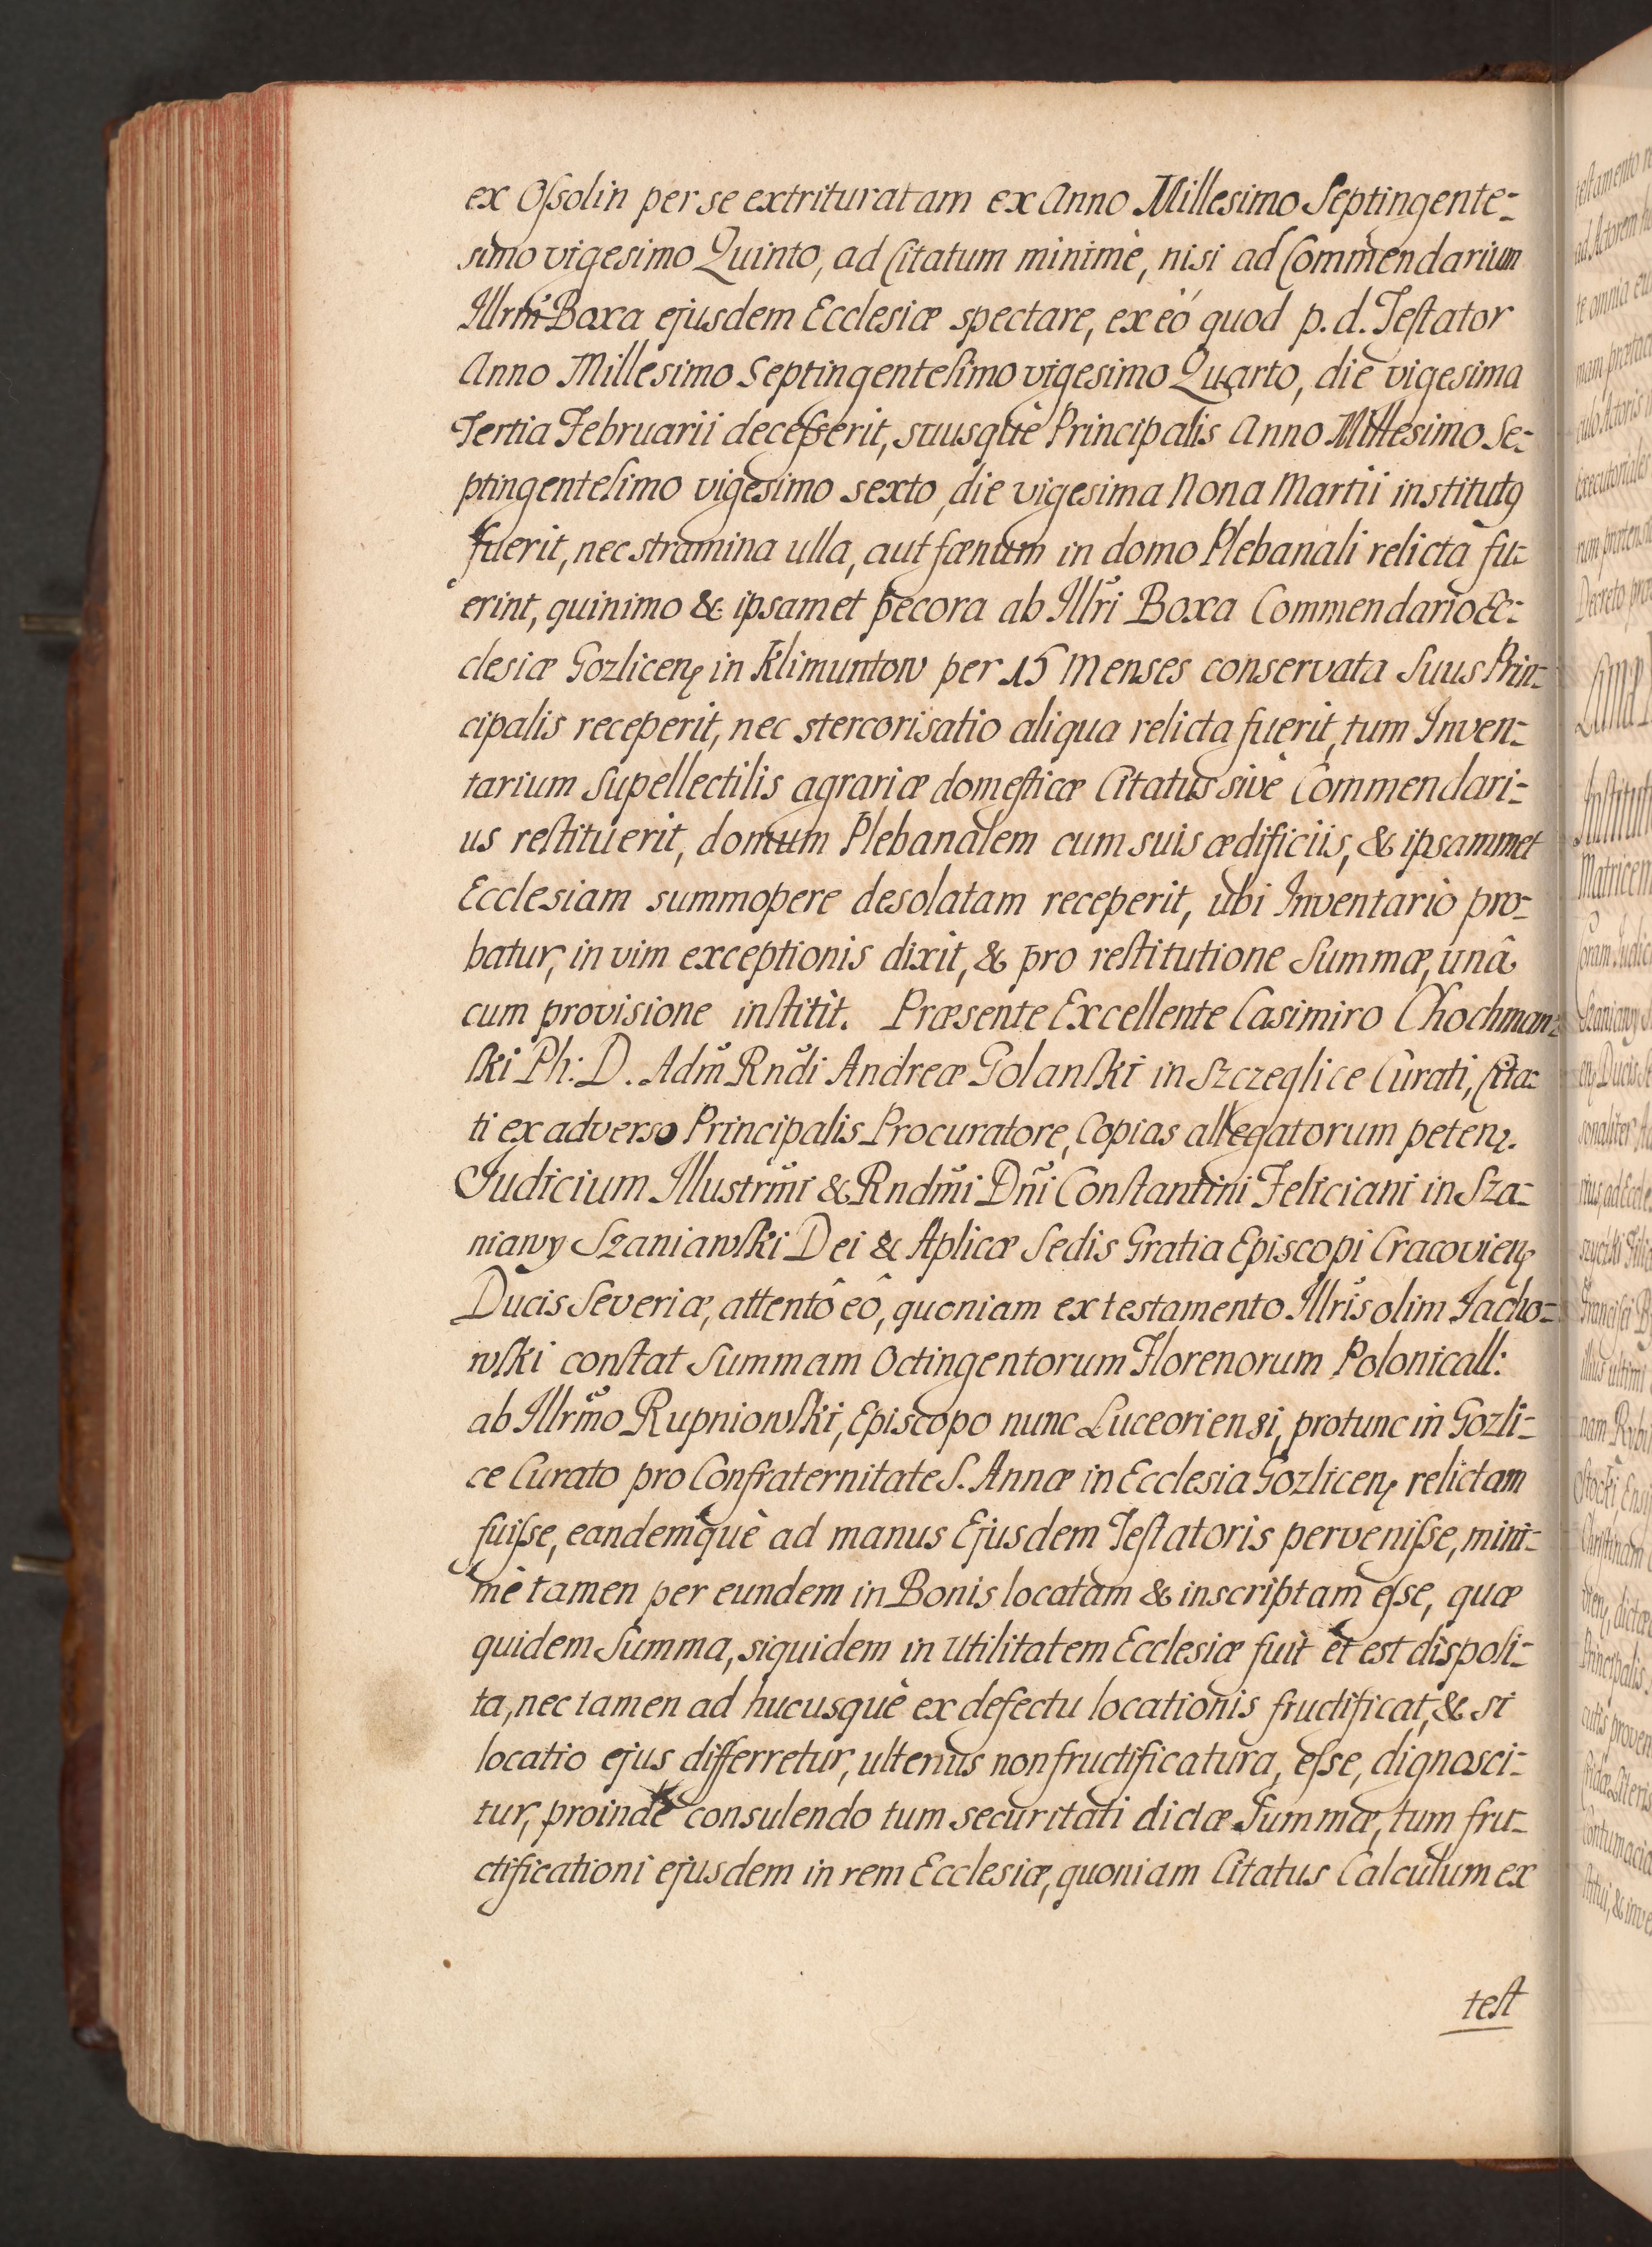 ex Oſsolin per se extrituratam ex Anno Millesimo Septingente-
simo vigesimo Quinto, ad Citatum minimè, nisi ad Commendarium
Illrm̃ Boxa ejusdem Ecclesiæ spectare, ex eó quod p. d. Teſtator
Anno Millesimo Septingenteſimo vigesimo Quarto, die vigesima
Tertia Februarii deceſserit, suusquè Principalis Anno Millesimo Se-
ptingenteſimo vigesimo sexto, die vigesima Nona Martii institutꝰ
fuerit, nec stramina ulla, aut fœnum in domo Plebanali relicta fu-
erint, quinimo & ipsamet pecora ab Illr̃i Boxa Commendario Ec-
clesiæ Gozlicenꝭ in Klimuntow per 15 Menses conservata Suus Prin-
cipalis receperit, nec stercorisatio aliqua relicta fuerit, tum Inven-
tarium Supellectilis agrariæ domeſticæ Citatus sivè Commendari-
us reſtituerit, domum Plebanalem cum suis ædificiis, & ipsammet
Ecclesiam summopere desolatam receperit, ubi Inventario pro-
batur, in vim exceptionis dixit, & pro reſtitutione Summæ, unâ
cum provisione inſtitit. Præsente Excellente Casimiro Chochman-
ſki Ph: D. Adm̃ Rndi Andreæ Golanſki in Szczeglice Curati, Cita-
ti ex adverso Principalis Procuratore, Copias allegatorum petenꝭ.
Judicium Illustrm̃i & Rndm̃i Dñi Conſtantini Feliciani in Sza-
niawy Szaniawſki Dei & Aplicæ Sedis Gratia Episcopi Cracovienꝭ
Ducis Severiæ, attentô eô, quoniam ex testamento Illr̃is olim Jacho-
wſki conſtat Summam Octingentorum Florenorum Polonicall:
ab Illrm̃o Rupniowſki, Episcopo nunc Luceoriensi, protunc in Gozli-
ce Curato pro Confraternitate S. Annæ in Ecclesia Gozlicenꝭ relictam
fuiſse, eandemquè ad manus Ejusdem Teſtatoris perveniſse, mini-
mè tamen per eundem in Bonis locatam & inscriptam eſse, quæ
quidem Summa, siquidem in utilitatem Ecclesiæ fuit et est dispoſi-
ta, nec tamen ad hucusquè ex defectu locationis fructificat, & si
locatio ejus differretur, ulterius non fructificatura, eſse, dignosci-
tur, proindè consulendo tum securitati dictæ Summæ, tum fru-
ctificationi ejusdem in rem Ecclesiæ, quoniam Citatus Calculum ex
teſt